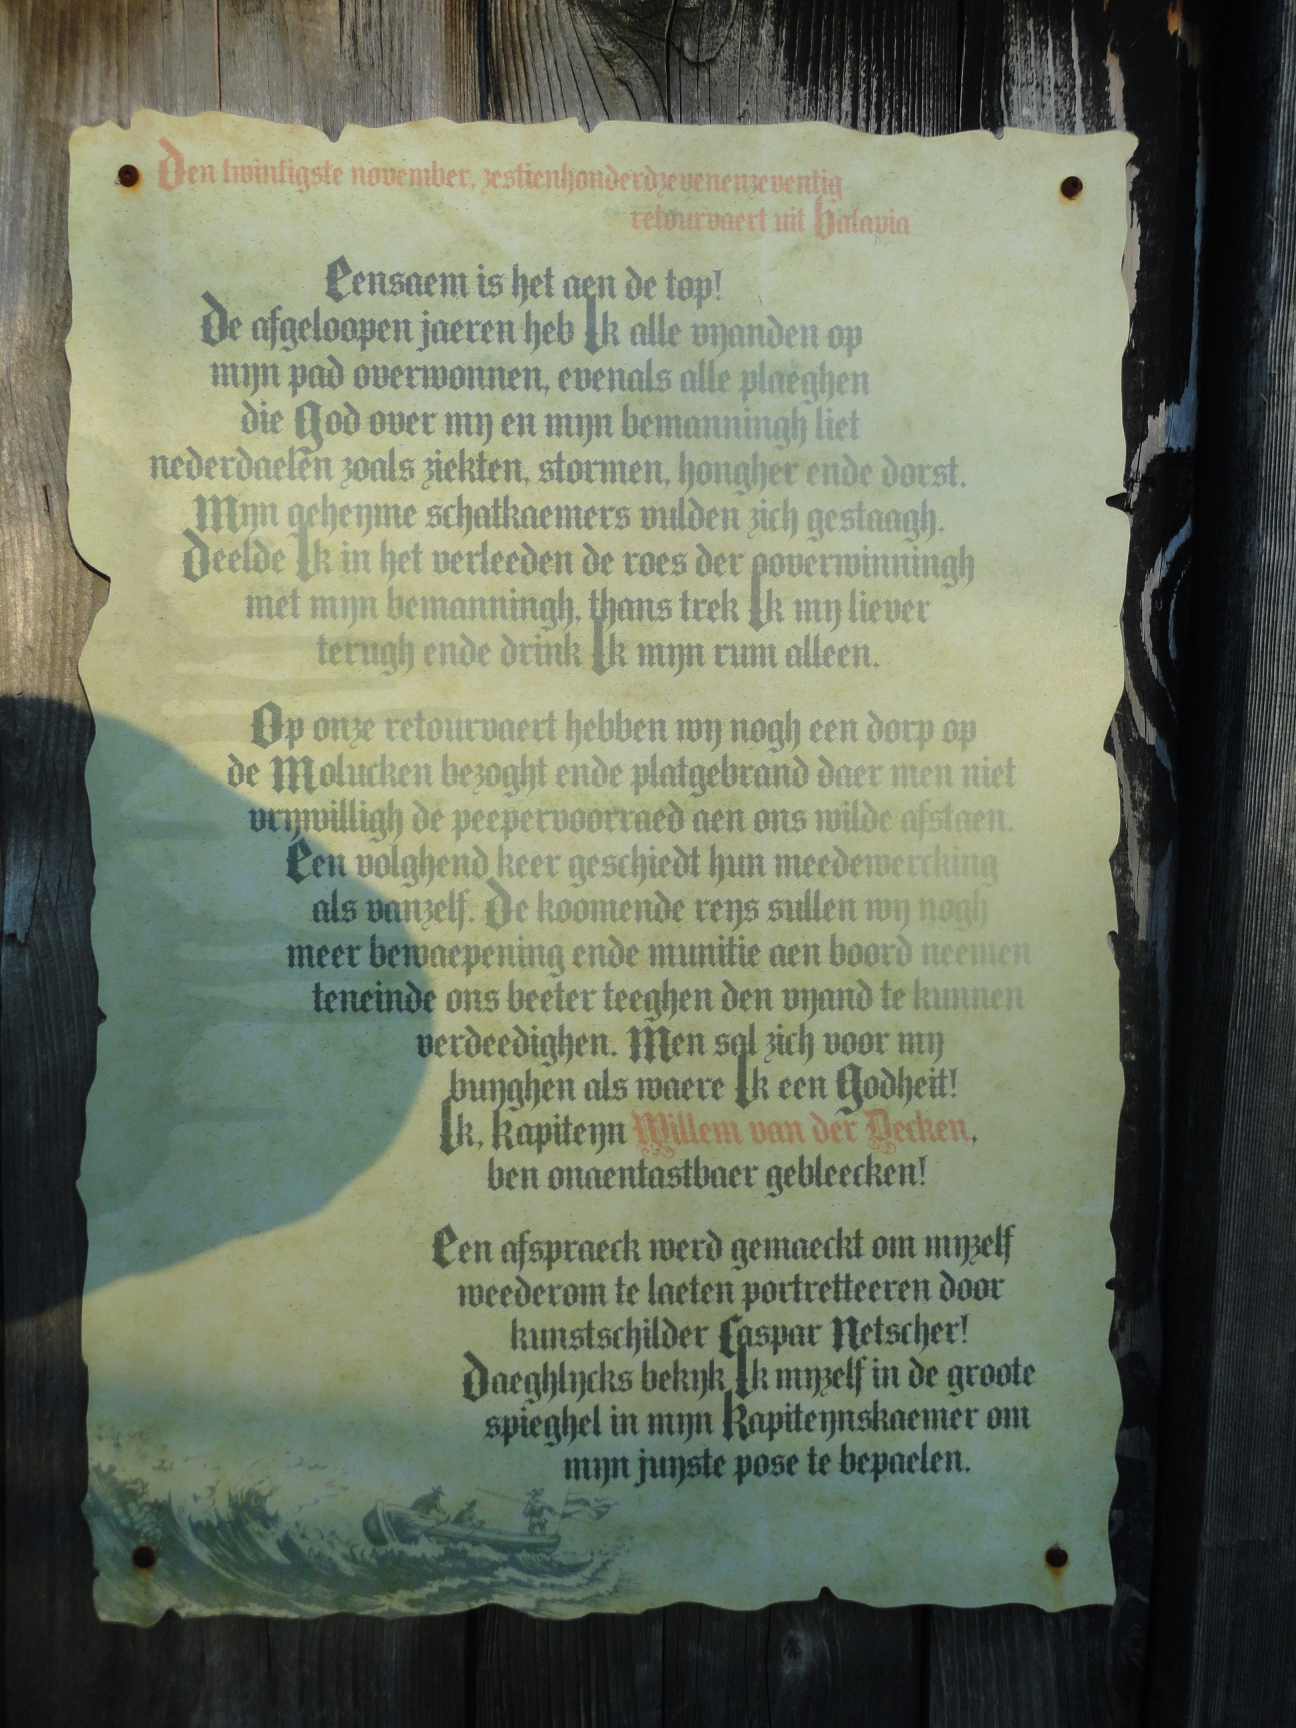 Den twintigste november, zestienhonderdzevenenzeventig
retourvaert uit Batavia
Eensaem is het aen de top!
De afgeloopen jaeren heb Ik alle vyanden op
myn pad overwonnen, evenals alle plaeghen
die God over my en myn bemanningh liet
nederdaelen zoals ziekten, stormen, hongher ende dorst.
Myn geheyme schatkaemers vulden zich gestaagh.
Deelde Ik in het verleeden de roes der ooverwinningh
met myn bemanningh, thans trek Ik my liever
terugh ende drink Ik myn rum alleen.
Op onze retourvaert hebben wy nogh een dorp op
de Molucken bezoght ende platgebrand daer men niet
vrywilligh de peepervoorraed aen ons wilde afstaen.
Een volghend keer geschiedt hun meedewercking
als vanzelf. De koomende reys sullen wy nogh
meer bewaepening ende munitie aen boord neemen
teneinde ons beeter teeghen den vyand te kunnen
verdeedighen. Men sal zich voor my
buyghen als waere Ik een Godheit!
Ik, Kapiteyn Willem van der Decken,
ben onaentastbaer gebleecken!
Een afspraeck werd gemaeckt om myzelf
weederom te laeten portretteeren door
kunstschilder Caspar Netscher!
Daeghlycks bekyk Ik myzelf in de groote
spieghel in myn Kapiteynskaemer om
myn juyste pose te bepaelen.